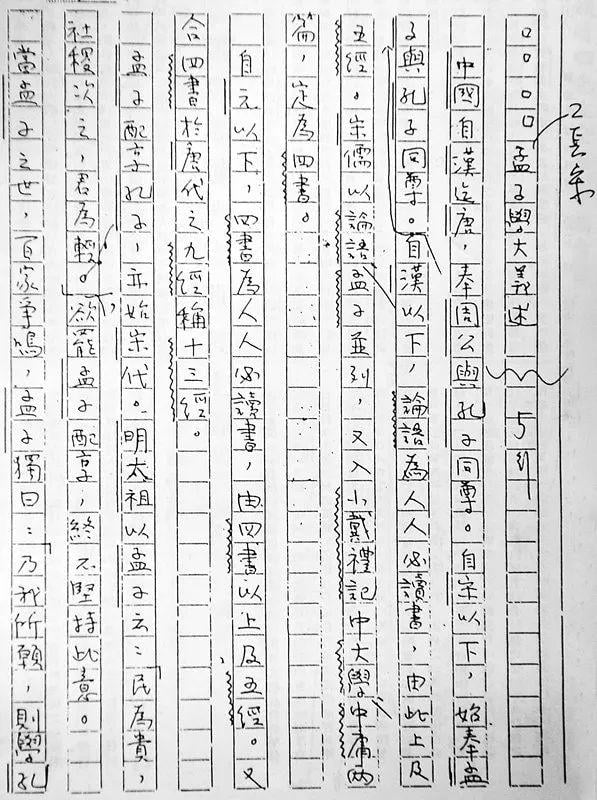 孟子學大義述
中國自漢迄唐，奉周公與孔子同尊。自宋以下，始奉孟
子與孔子同尊。自漢以下，論語為人人必讀書，由此上及
五經。宋儒以論語孟子並列，又入小戴禮記中大學中庸兩
篇，定為四書。
自元以下，四書為人人必讀書，由四書以上及五經。又
合四書於唐代之九經稱十三經。
孟子配享孔子，亦始宋代。明太祖以孟子云：「民為貴，
社稷次之，君為輕。」欲罷孟子配享，終不堅持此意。
當孟子之世，百家爭鳴，孟子獨曰：「乃我所願，則學孔